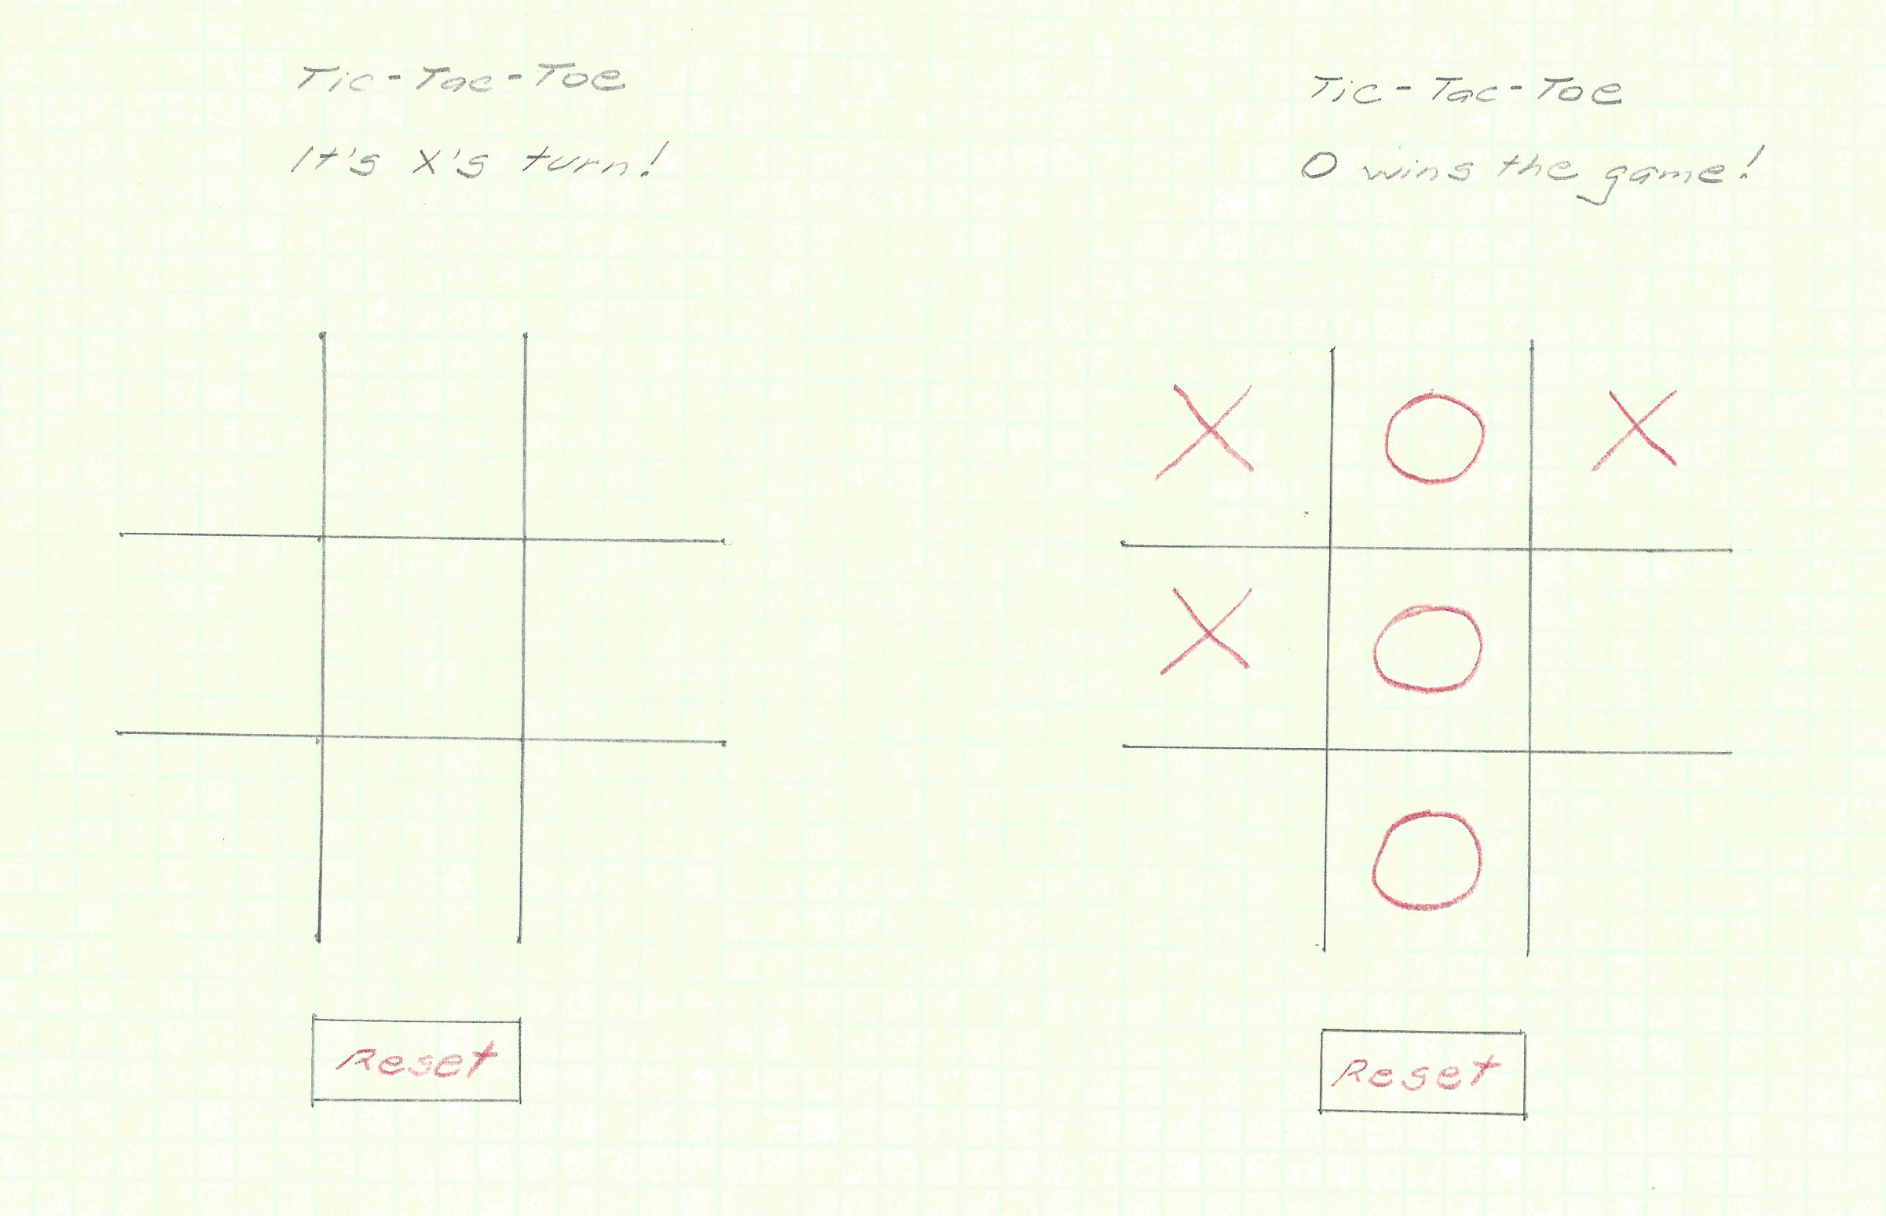 Tic-Tac-Toe
It's X's turn!
Reset
Tic-Tac-Toe
O wins the game!
X O X
X O
O
Reset